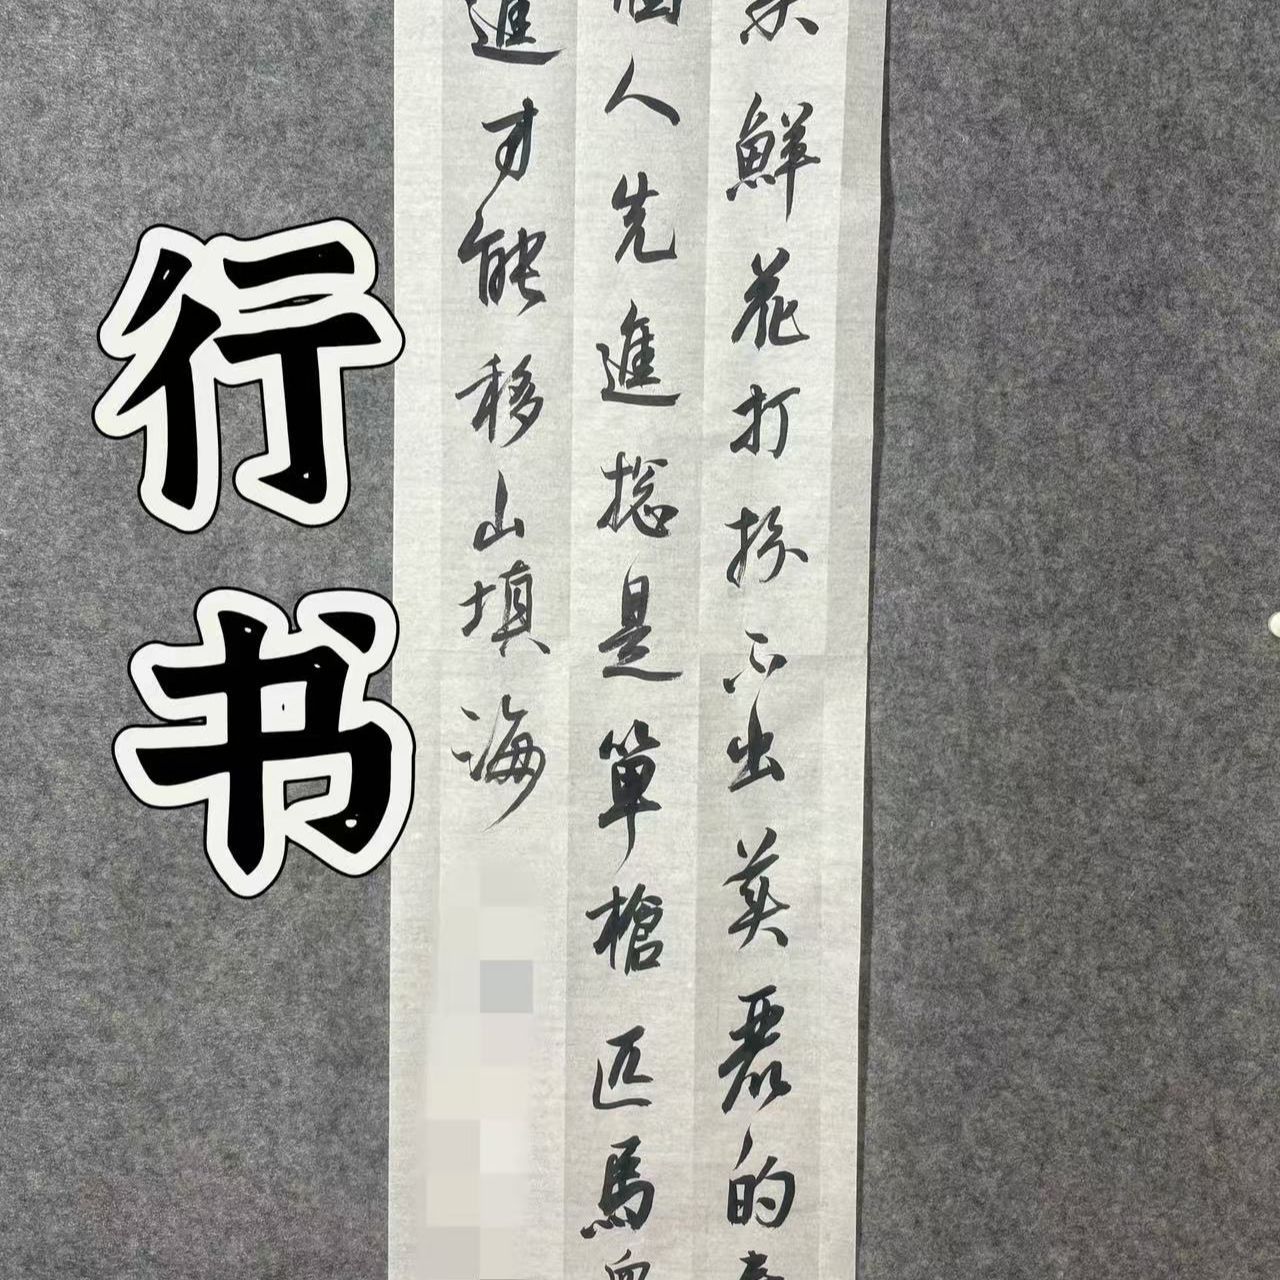 行书
朵鮮花打扮不出美麗的春
個人先進總是單槍匹馬眾
進才能移山填海